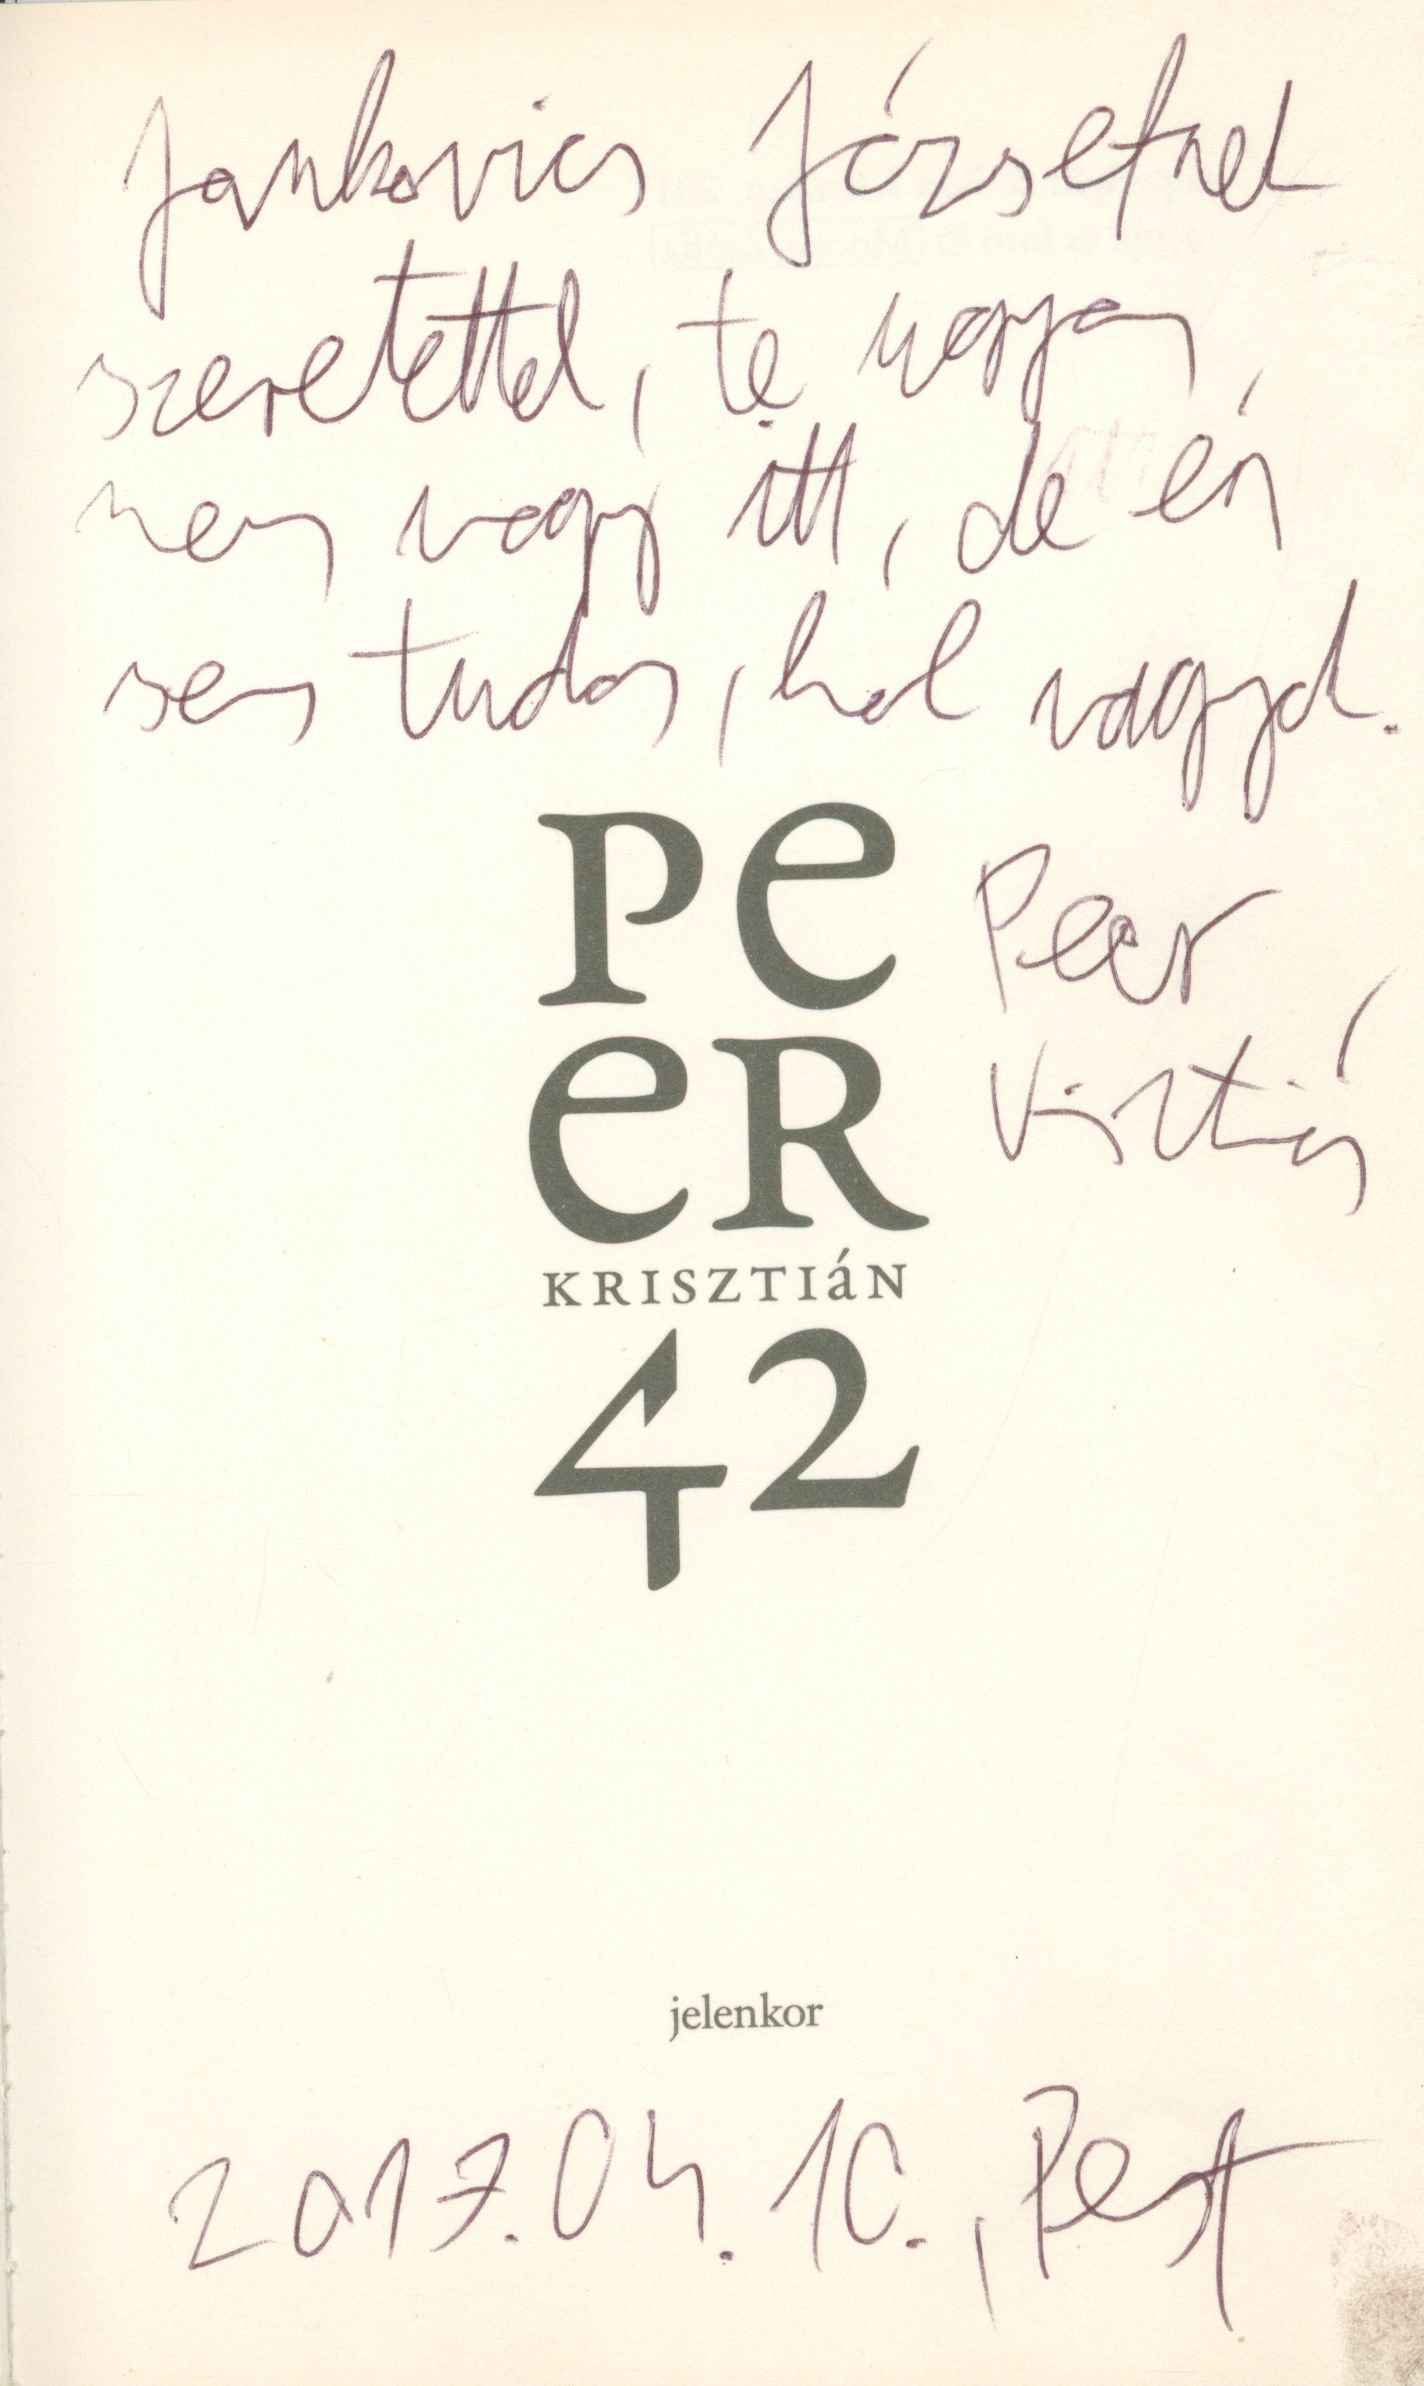 Jankovics Józsefnek
szeretettel, te ugyan
nem vagy itt, de én
sem tudom, hol vagyok.
Peer
Krisztián
PE
ER
KRISZTIáN
42
jelenkor
2017.04.10., Pest